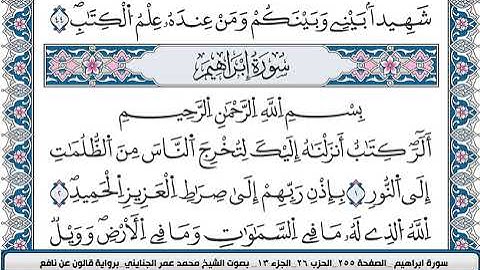 شَهِيداَۢ بَيْنِے وَبَيْنَكُمْ وَمَنْ عِندَهُۥ عِلْمُ اُ۬لْكِتَٰبِۖ ٤٤
سُورَةُ إِبْرَاهِيمَ
بِسْمِ اِ۬للَّهِ اِ۬لرَّحْمَٰنِ اِ۬لرَّحِيمِ
أَلَٓرۖ كِتَٰبٌ أَنزَلْنَٰهُ إِلَيْكَ لِتُخْرِجَ اَ۬لنَّاسَ مِنَ اَ۬لظُّلُمَٰتِ
إِلَي اَ۬لنُّورِ ١ بِإِذْنِ رَبِّهِمْ إِلَىٰ صِرَٰطِ اِ۬لْعَزِيزِ اِ۬لْحَمِيدِ ٢
اِ۬للَّهُ اُ۬لذِے لَهُۥ مَا فِے اِ۬لسَّمَٰوَٰتِ وَمَا فِے اِ۬لْأَرْضِۖ وَوَيْلٞ
سورة ابراهيم _الصفحة ٢٥٥_ الحزب ٢٦_ الجزء ١٣_ بصوت الشيخ محمد عمر الجنايني_ برواية قالون عن نافع